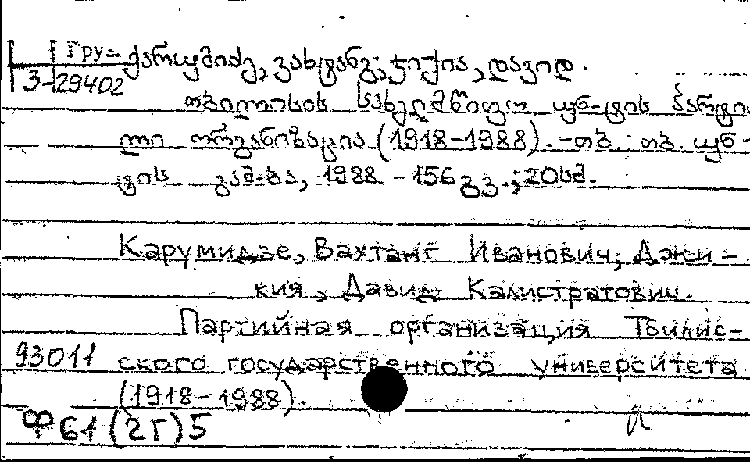 Гру-
3-29402
ქარუმიძე, ვახტანგ; ჯიქია, დავით.
თბილისის სახელმწიფო უნ-ტის პარტიუ
ლი ორგანიზაცია (1918-1988). - თბ.: თბ. უნ-
ტის გამ-ბა, 1988 - 156 გვ.; 20სმ.
Карумидзе, Вахтанг Иванович; Джи-
кия, Давид Калистратович.
Партийная организация Тбилис-
93011 ского государственного университета
(1918-1988).
Ф 61(2Г)5